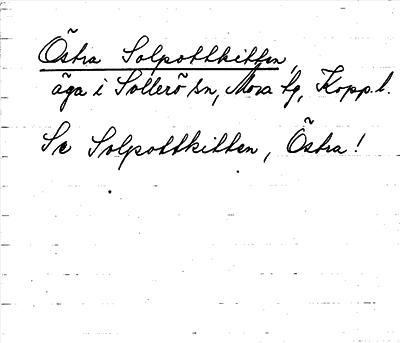 Östra Solpottkitten,
äga i Sollerö sn, Mora tg, Kopp.l.
Se Solpottkitten, Östra!